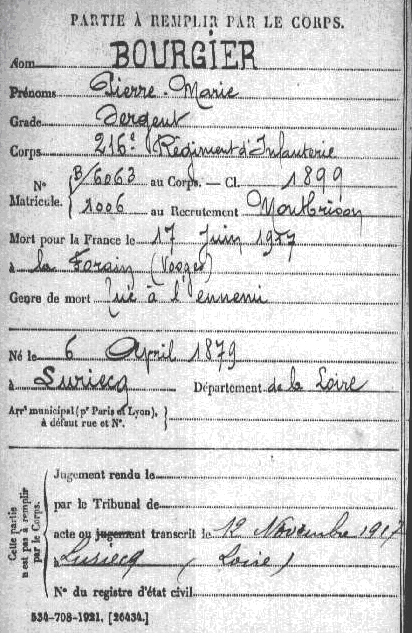 PARTIE À REMPLIR PAR LE CORPS.
Nom BOURGIER
Prénoms Pierre-Marie
Grade Sergent
Corps 216e Régiment d'Infanterie
N° Matricule. B/6063 au Corps. — Cl. 1899
1006 au Recrutement Montbrison
Mort pour la France le 17 Juin 1917
à la Forain (Vosges)
Genre de mort Tué à l'ennemi
Né le 6 April 1879
à Luriecq Département de la Loire
Arrt municipal (pr Paris et Lyon),
à défaut rue et N°.
Cette partie n est pas à remplir par le Corps.
Jugement rendu le
par le Tribunal de
acte ou jugement transcrit le 12 Novembre 1917
à Luriecq (Loire)
N° du registre d'état civil
534-708-1921. [26434.]